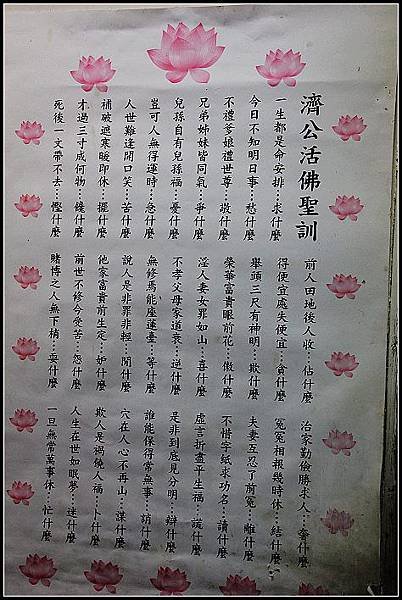 濟公活佛聖訓
一生都是命安排…求什麼
今日不知明日事…愁什麼
不禮爹娘禮世尊…什麼
兄弟姊妹皆同氣…爭什麼
兒孫自有兒孫福…憂什麼
豈可人無得運時…急什麼
人世難逢開口笑…苦什麼
補破遮寒暖即休…擺什麼
才過三寸成何物…饞什麼
死後一文帶不去…慳什麼
前人田地後人收…佔什麼
得便宜處失便宜…貪什麼
舉頭三尺有神明…欺什麼
榮華富貴眼前花…傲什麼
淫人妻女罪如山…喜什麼
不孝父母家道衰…逆什麼
無修焉能座蓮臺…等什麼
說人是非罪非輕…閒什麼
他家富貴前生定…妒什麼
前世不修今受苦…怨什麼
賭博之人無下梢…耍什麼
治家勤儉勝求人…奢什麼
冤冤相報幾時休…結什麼
夫妻互忍了前冤…離什麼
不惜字紙求功名…讀什麼
虛言折盡平生福…謊什麼
是非到底見分明…辯什麼
誰能保得常無事…什麼
穴在人心不再山…謀什麼
欺人是禍饒人福…卜什麼
人生在世如眠夢…迷什麼
一旦無常萬事休…忙什麼